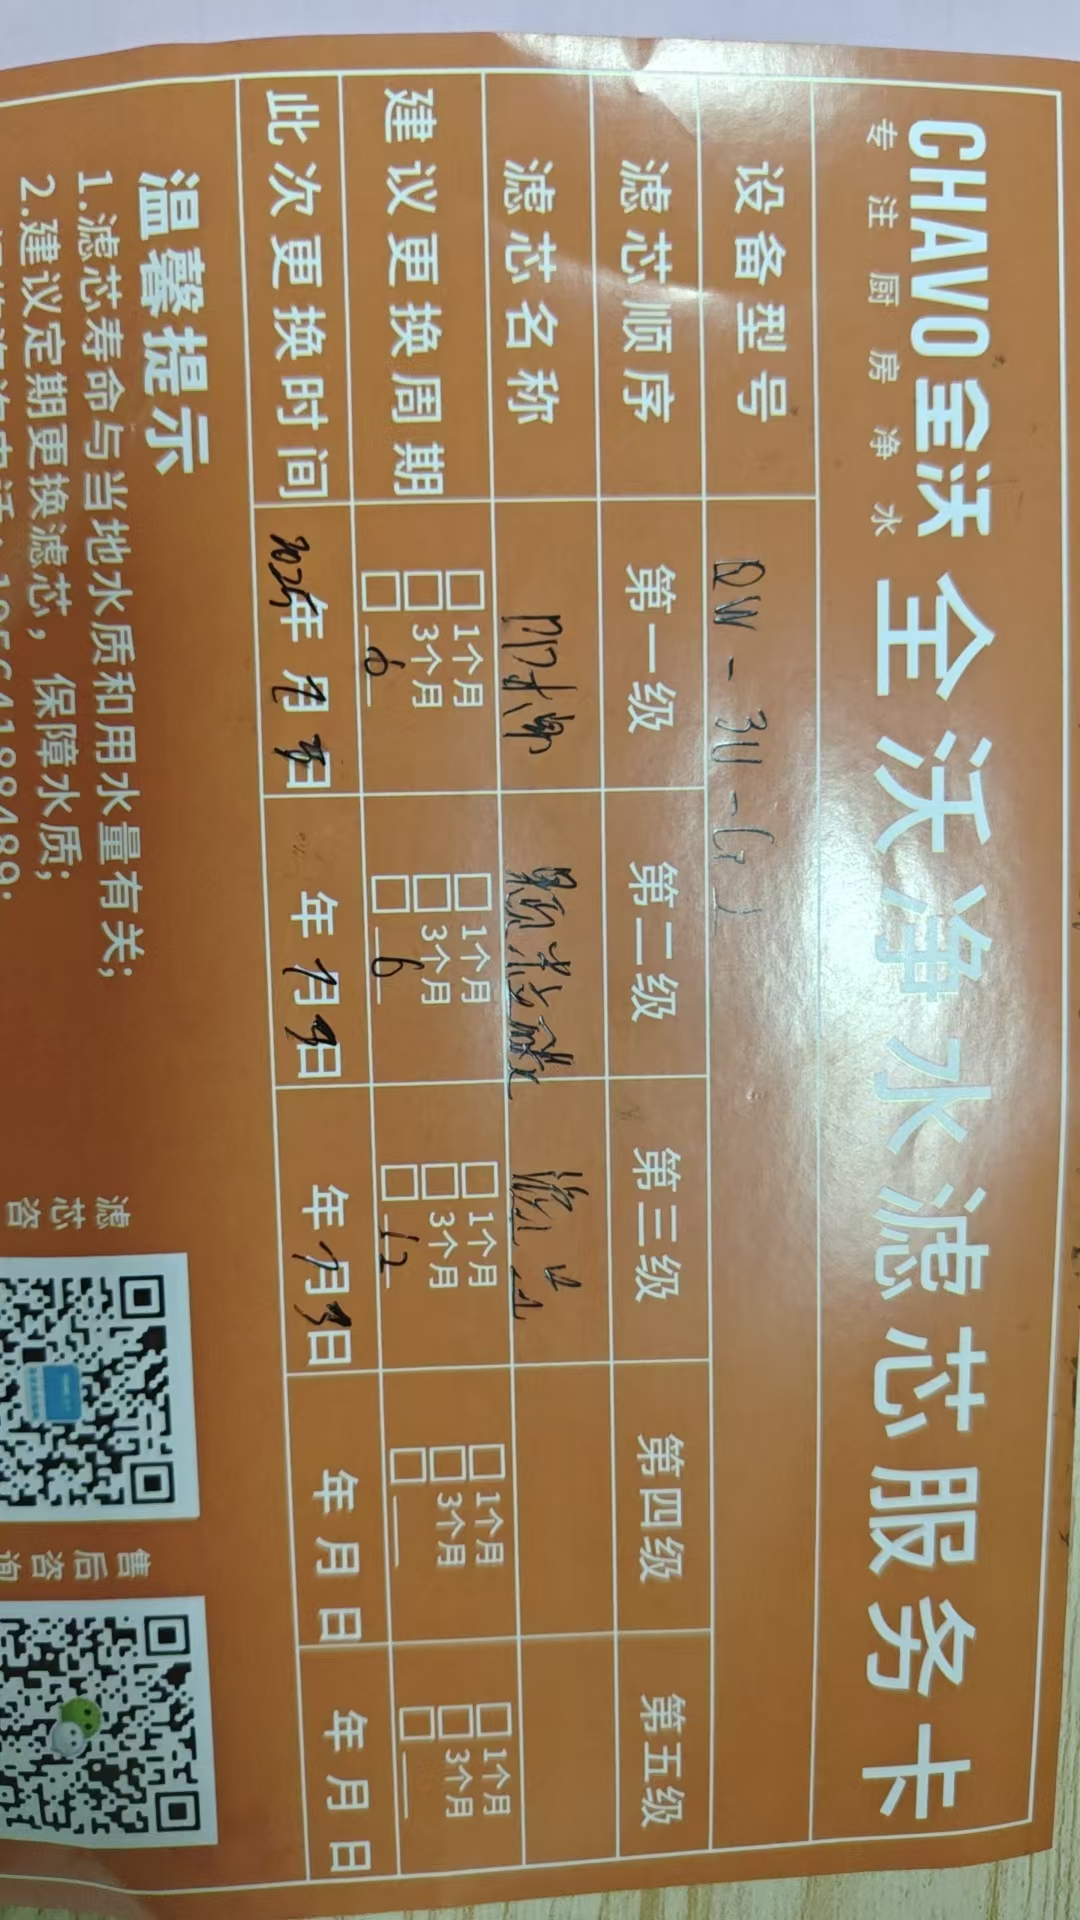 CHAVO全沃 全沃净水滤芯服务卡
专注厨房净水
设备型号 QW-3U-G
滤芯顺序 第一级 第二级 第三级 第四级 第五级
滤芯名称 阻垢
建议更换周期 1个月 3个月 6 1个月 3个月 6 1个月 3个月 12 1个月 3个月 1个月 3个月
此次更换时间 2025年 月 日 年 月 日 年 月 日 年 月 日 年 月 日
温馨提示
1.滤芯寿命与当地水质和用水量有关;
2.建议定期更换滤芯，保障水质;
滤芯咨
售后咨询